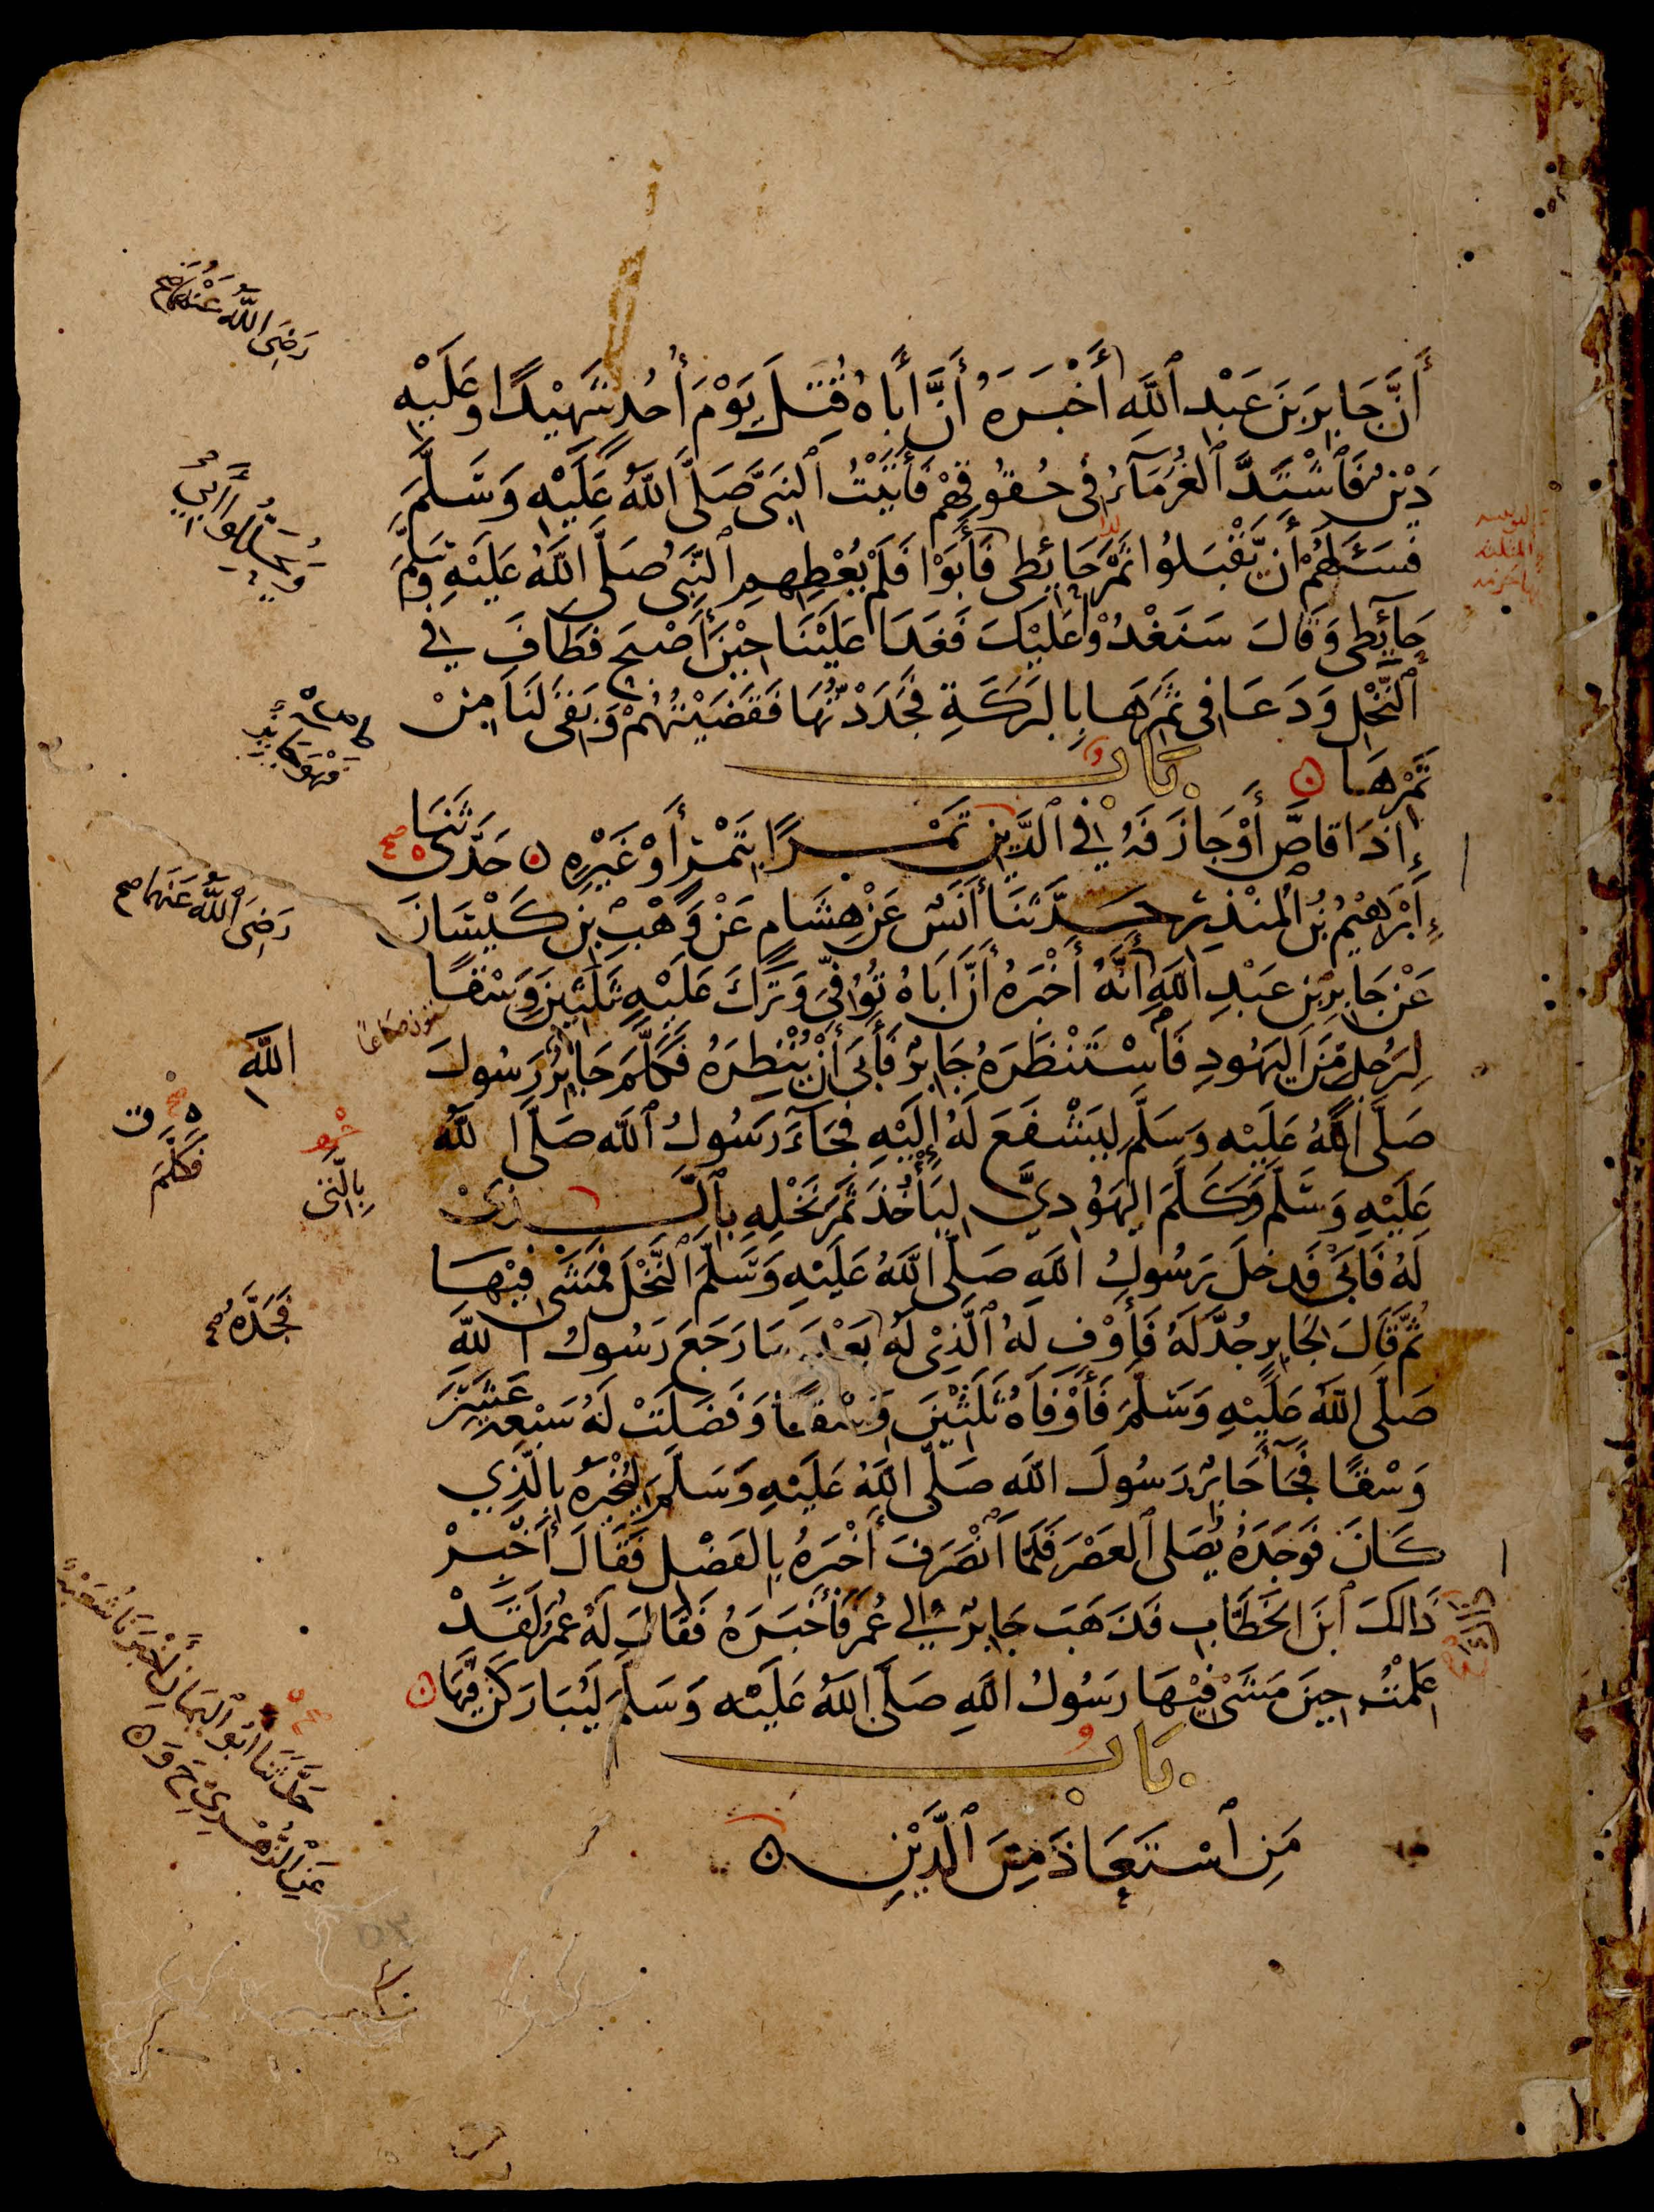 أَنَّ جَابِرَ بْنَ عَبْدِ ٱللَّهِ أَخْبَرَهُ أَنَّ أَبَاهُ قُتِلَ يَوْمَ أُحُدٍ شَهِيْدًا وَعَلَيْهِ
دَيْنٌ فَٱشْتَدَّ ٱلْغُرَمَآءُ فِى حُقُوقِهِمْ فَأَتَيْتُ ٱلنَّبِىَّ صَلَّى ٱللَّهُ عَلَيْهِ وَسَلَّمَ
فَسَئَلَهُمْ أَنْ يَقْبَلُوا تَمْرَ حَائِطِى فَأَبَوْا فَلَمْ يُعْطِهِمِ ٱلنَّبِىُّ صَلَّى ٱللَّهُ عَلَيْهِ وَسَلَّمَ
حَآئِطِى وَقَالَ سَنَغْدُوْ عَلَيْكَ فَغَدَا عَلَيْنَا حِيْنَ أَصْبَحَ فَطَافَ فِي
ٱلنَّخْلِ وَدَعَا فِى ثَمَرِهَا بِالْبَرَكَةِ فَجَدَدْتُهَا فَقَضَيْتُهُمْ وَبَقِىَ لَنَا مِنْ
تَمْرِهَا ۝
بَابٌ
إِذَا قَاصَّ أَوْ جَازَفَهُ فِي ٱلدَّيْنِ تَمْرًا بِتَمْرٍ أَوْ غَيْرِهِ ۝ حَدَّثَنَا
إِبْرَهِيْمُ بْنُ الْمُنْذِرِ حَدَّثَنَا أَنَسٌ عَنْ هِشَامٍ عَنْ وَهْبِ بْنِ كَيْسَانَ
عَنْ جَابِرِ بْنِ عَبْدِ اللَّهِ أَنَّهُ أَخْبَرَهُ أَنَّ أَبَاهُ تُوُفِّىَ وَتَرَكَ عَلَيْهِ ثَلَثِيْنَ وَسْقًا
لِرَجُلٍ مِّنَ الْيَهُودِ فَٱسْتَنْظَرَهُ جَابِرٌ فَأَبَى أَنْ يُنْظِرَهُ فَكَلَّمَ جَابِرٌ رَسُولَ
صَلَّى اللَّهُ عَلَيْهِ وَسَلَّمَ لِيَشْفَعَ لَهُ إِلَيْهِ فَجَآءَ رَسُولُ ٱللَّهِ صَلَّى اللَّهُ
عَلَيْهِ وَسَلَّمَ وَكَلَّمَ الْيَهُوْدِيَّ لِيَأْخُذَ ثَمَرَ نَخْلِهِ بِٱلَّذِىْ
لَهُ فَأَبَىٰ فَدَخَلَ رَسُولُ اللَّهِ صَلَّى اللَّهُ عَلَيْهِ وَسَلَّمَ ٱلنَّخْلَ فَمَشَى فِيْهَا
ثُمَّ قَالَ لِجَابِرٍ جُدَّ لَهُ فَأَوْفِ لَهُ ٱلَّذِىْ لَهُ بَعْدَ مَا رَجَعَ رَسُولُ اللَّهِ
صَلَّى اللَّهُ عَلَيْهِ وَسَلَّمَ فَأَوْفَاهُ ثَلَثِيْنَ وَسْقًا وَفَضَلَتْ لَهُ سَبْعَةَ عَشَرَ
وَسْقًا فَجَآءَ جَابِرٌ رَسُولَ اللَّهِ صَلَّى اللَّهُ عَلَيْهِ وَسَلَّمَ لِيُخْبِرَهُ بِالَّذِي
كَانَ فَوَجَدَهُ يُصَلِّى ٱلْعَصْرَ فَلَمَّا ٱنْصَرَفَ أَخْبَرَهُ بِالْفَضْلِ فَقَالَ أَخْبِرْ
ذَالِكَ ٱبْنَ الْخَطَّابِ فَذَهَبَ جَابِرٌ إِلَى عُمَرَ فَأَخْبَرَهُ فَقَالَ لَهُ عُمَرُ لَقَدْ
عَلِمْتُ حِينَ مَشَىْ فِيْهَا رَسُولُ اللَّهِ صَلَّى اللَّهُ عَلَيْهِ وَسَلَّمَ لَيُبَارَكَنَّ فِيْهَا ۝
بَابٌ
مَنِ ٱسْتَعَاذَ مِنَ ٱلدَّيْنِ ۝
رَضِىَ اللَّهُ عَنْهُمَا صح
وَيُحَلِّلُوا أَبِي
رَضِىَ ٱللَّهُ عَنْهُمَا صح
اللَّهِ
فَكَلَّمَ
بِالَّتِى
فَجَدَّهُ
حَدَّثَنَا أَبُو ٱلْيَمَانِ أَخْبَرَنَا شُعَيْبٌ
عَنِ ٱلزُّهْرِىِّ ح وَ